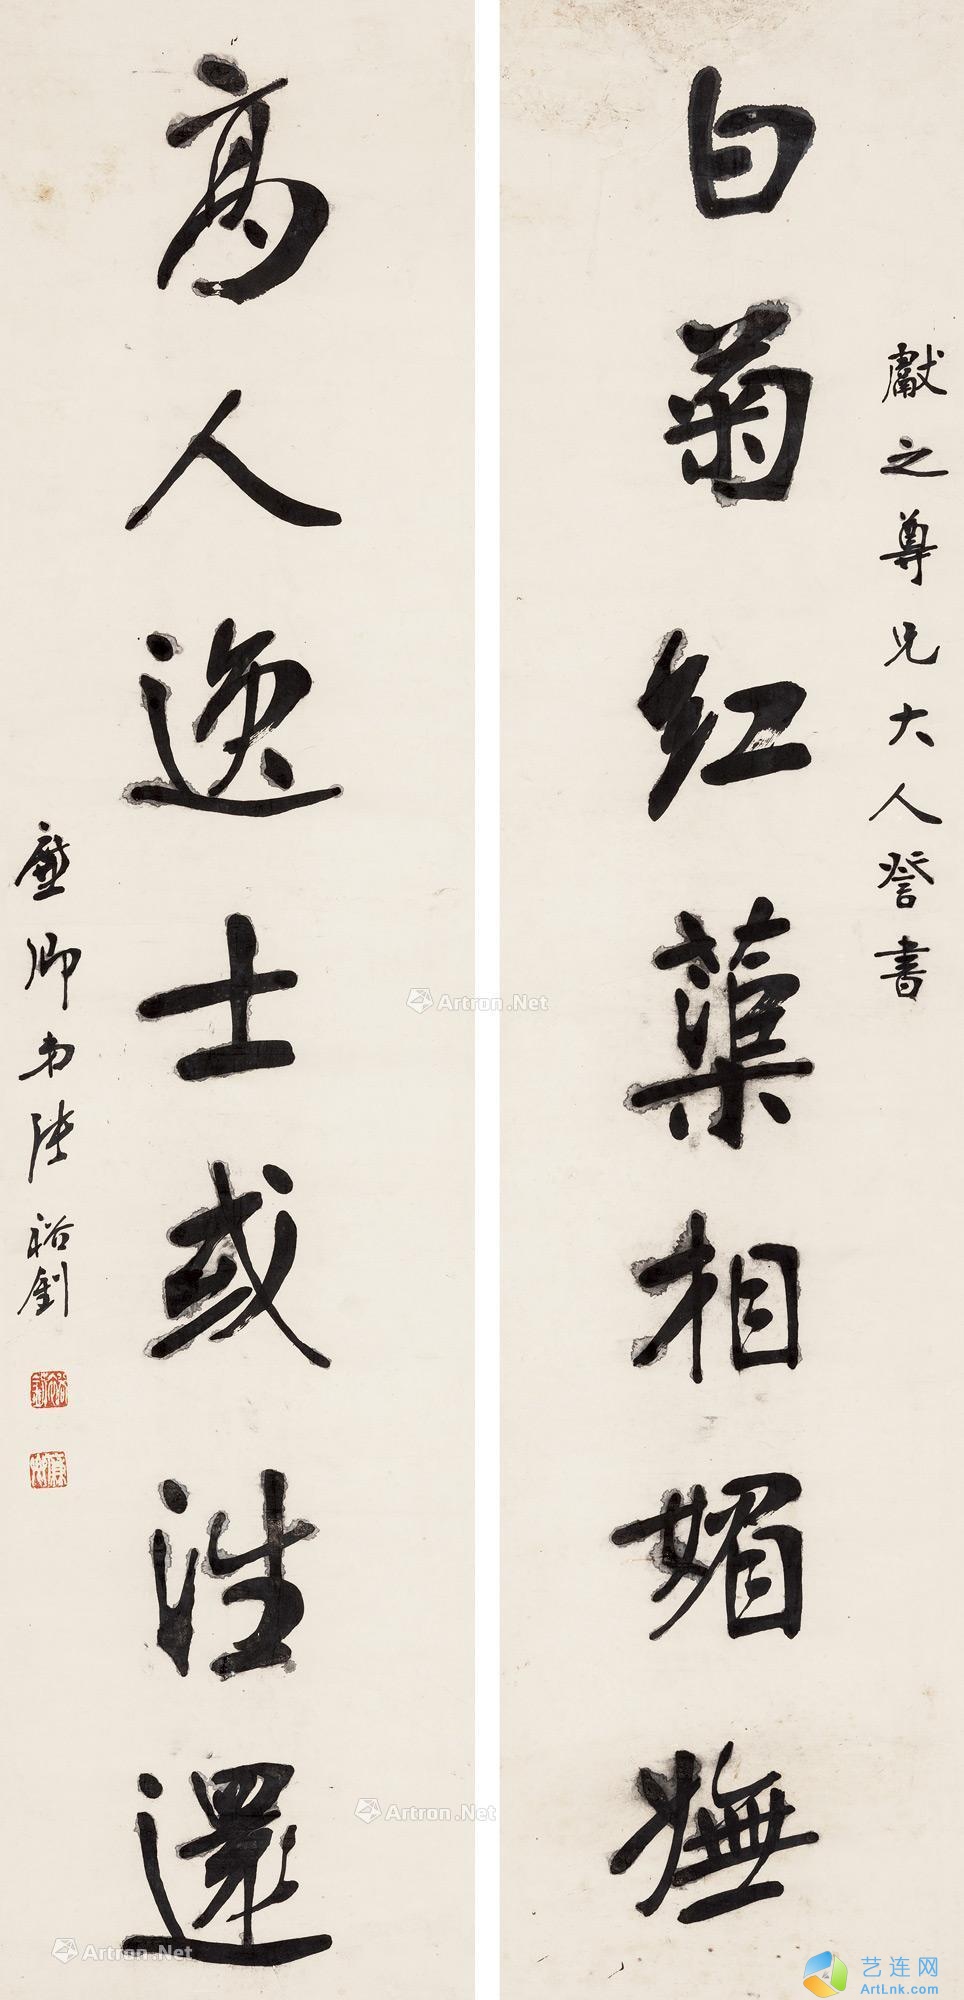 獻之尊兄大人詧書
白菊紅蕖相媚嫵
高人逸士或往還
廉卿弟張裕釗
Artron.Net
Artron.Net
Artron.Net
艺连网
ArtLnk.com